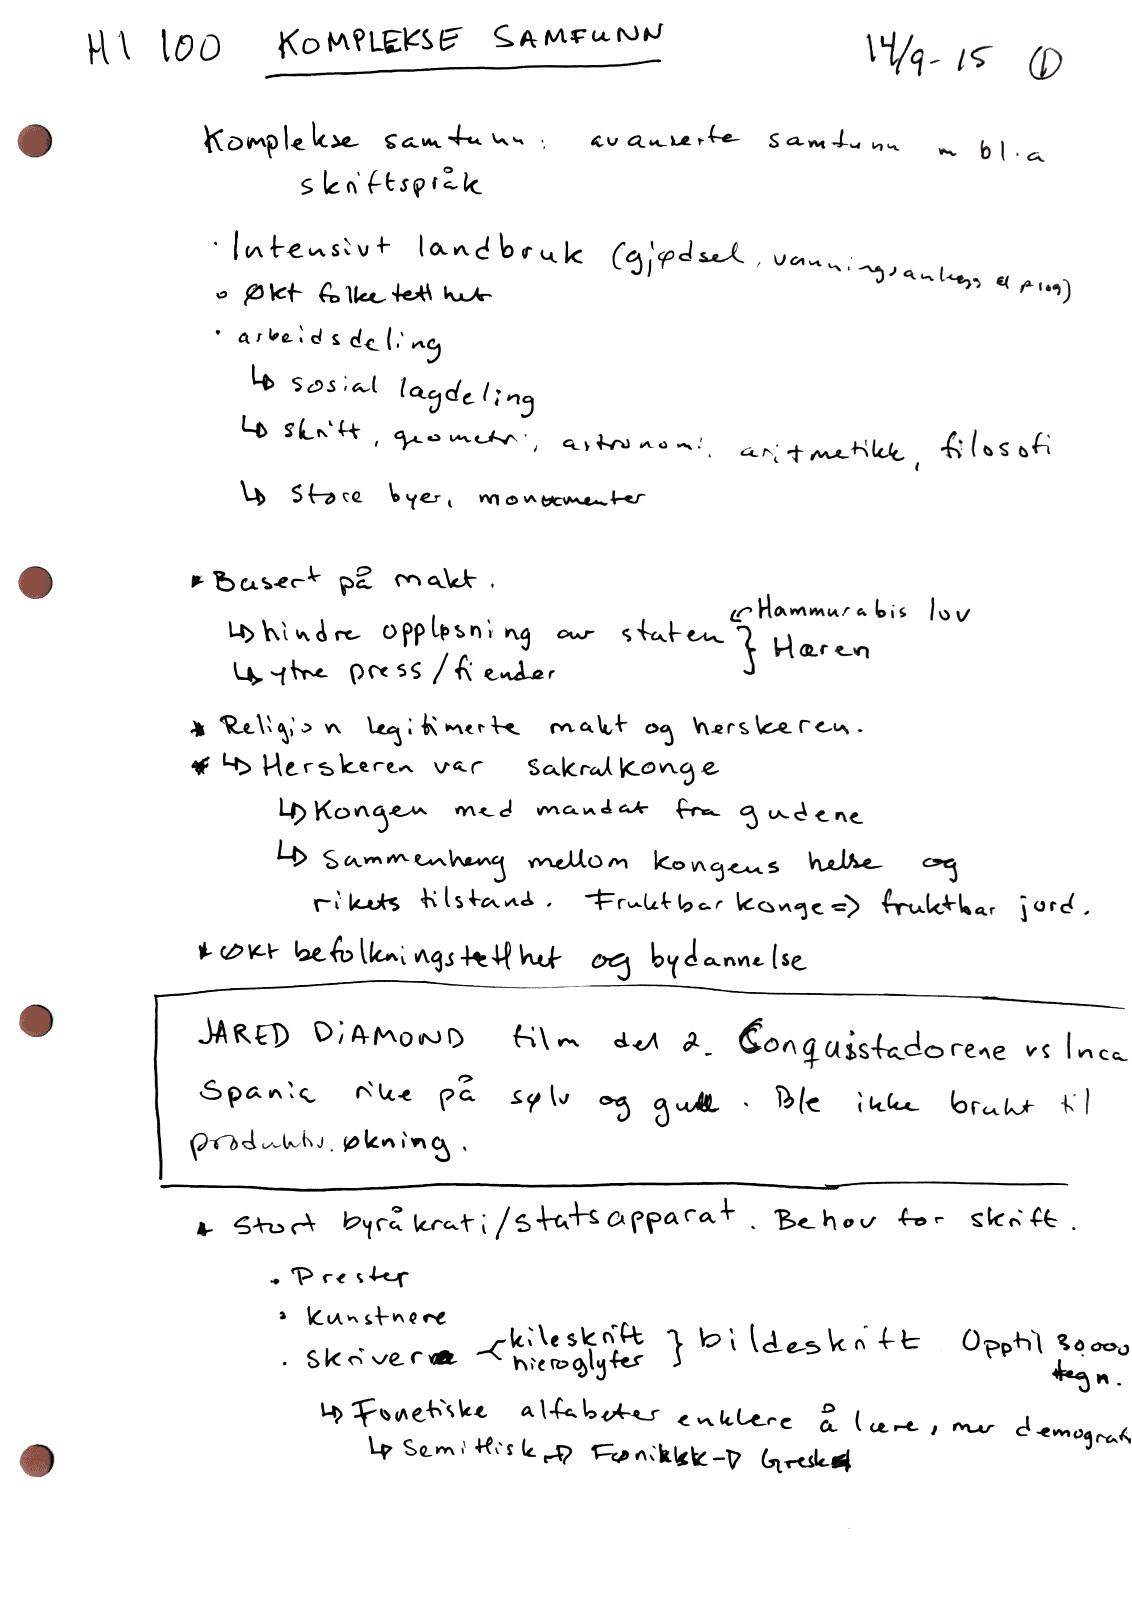 HI 100 KOMPLEKSE SAMFUNN 14/9-15 ①
Komplekse samfunn: avanserte samfunn m bl.a
skriftspråk
· Intensivt landbruk (gjødsel, vanningsanlegg el plog)
· Økt folketetthet
· arbeidsdeling
↳ sosial lagdeling
↳ skrift, geometri, astronomi, aritmetikk, filosofi
↳ Store byer, monumenter
* Basert på makt.
↳ hindre oppløsning av staten } ↙ Hammurabis lov
↳ ytre press/fiender } Hæren
* Religion legitimerte makt og herskeren.
* ↳ Herskeren var sakralkonge
↳ Kongen med mandat fra gudene
↳ Sammenheng mellom kongens helse og
rikets tilstand. Fruktbar konge => fruktbar jord.
* Økt befolkningstetthet og bydannelse
JARED DIAMOND film del 2. Conquistadorene vs Inca
Spania rike på sølv og gull. Ble ikke brukt til
produktiv. økning.
* Stort byråkrati/statsapparat. Behov for skrift.
· Prester
· Kunstnere
· Skrivere < kileskrift hieroglyfer } bildeskrift Opptil 30.000
tegn.
↳ Fonetiske alfabeter enklere å lære, mer demograti
↳ Semittisk → Fønikisk → Gresk